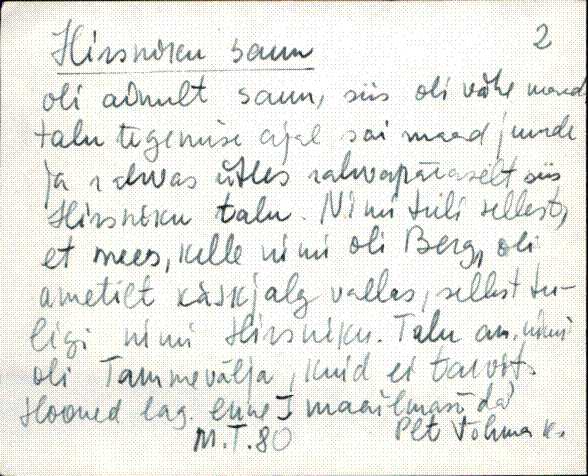 2
Hirsniku saun
oli ainult saun, siis oli vähe maad
talu tegemise ajal sai maad juurde
ja rahvas ütles rahvapäraselt siis
Hirsniku talu. Nimi tuli sellest,
et mees, kelle nimi oli Berg, oli
ametilt käskjalg vallas, sellest tu-
ligi nimi Hirsniku. Talu am. nimi
oli Tammevälja, kuid ei tarvit.
Hooned lag. enne I maailmasõda
M.T.80 Plt